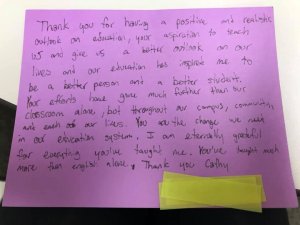 Thank you for having a positive and realistic
outlook on education, your aspiration to teach
us and give us a better outlook on our
lives and our education has inspire me to
be a better person and a better student.
Your efforts have gone much further than our
classroom alone, but throughout our campus, community,
and each of our lives. You are the change we need
in our education system. I am eternally grateful
for everything you've taught me. You've taught much
more than english alone. Thank you Cathy